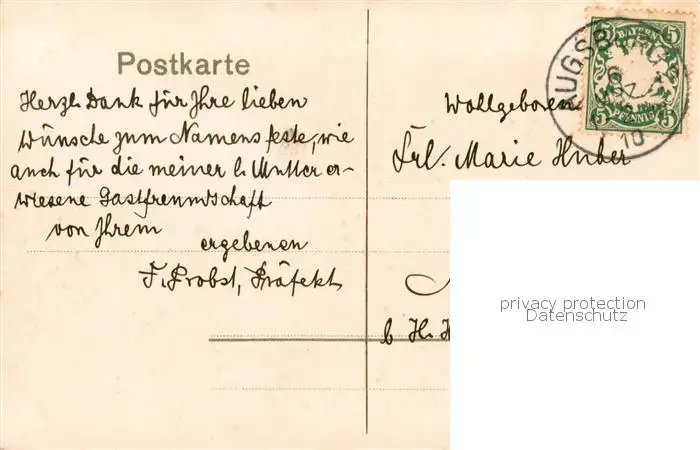 Postkarte
Herzl. Dank für Ihre lieben
Wünsche zum Namensfeste, wie
auch für die meiner l. Mutter er-
wiesene Gastfreundschaft
von Ihrem
ergebenen
F. Probst, Präfekt
Wohlgeboren
Frl. Marie Huber
b H. H
AUGSBURG
10
5 BAYERN 5
5 PFENNIG 5
privacy protection
Datenschutz